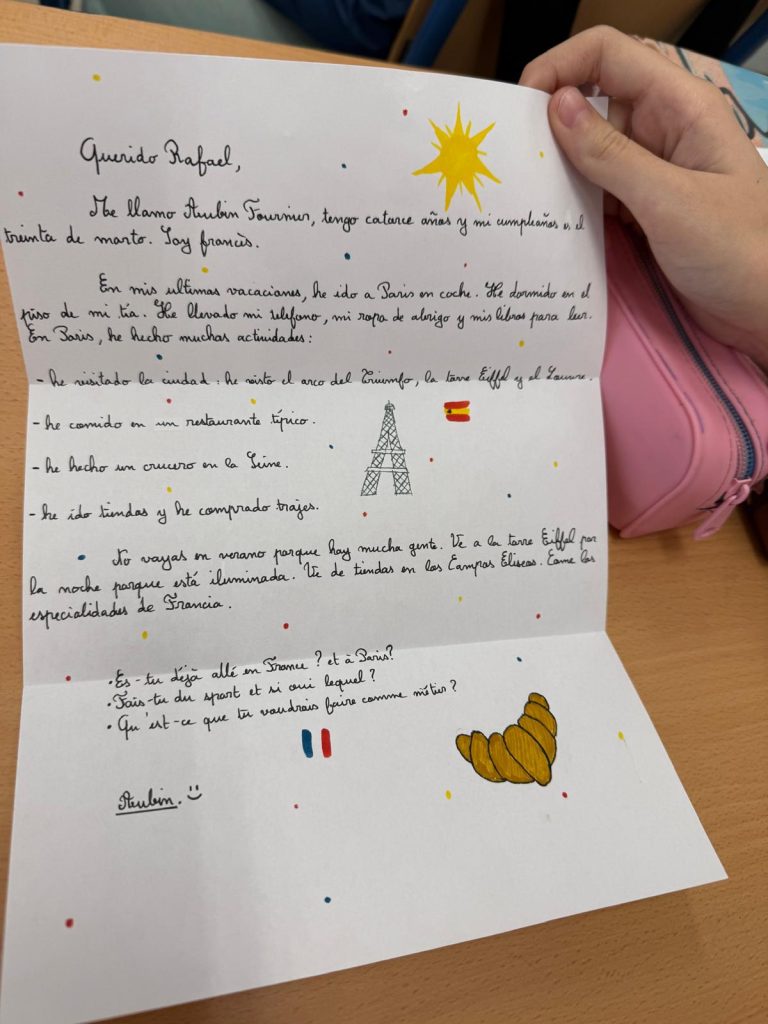 Querido Rafael,
Me llamo Aubin Fournier, tengo catorce años y mi cumpleaños es el
treinta de marto. Soy francès.
En mis ultimas vacaciones, he ido a Paris en coche. He dormido en el
piso de mi tía. He llevado mi telefano, mi ropa de abrigo y mis libros para leer.
En Paris, he hecho muchas actividades :
- he visitado la ciudad : he visto el arco del Triumfo, la torre Eiffel y el Louvre.
- he comido en un restaurante típico.
- he hecho un crucero en la Seine.
- he ido tiendas y he comprado trajes.
No vayas en verano porque hay mucha gente. Ve a la torre Eiffel por
la noche porque está iluminada. Ve de tiendas en los Campos Elíseos. Come las
especialidades de Francia.
• Es-tu déjà allé en France ? et à Paris?
• Fais-tu du sport et si oui lequel ?
• Qu'est-ce que tu voudrais faire comme métier ?
Aubin. :)